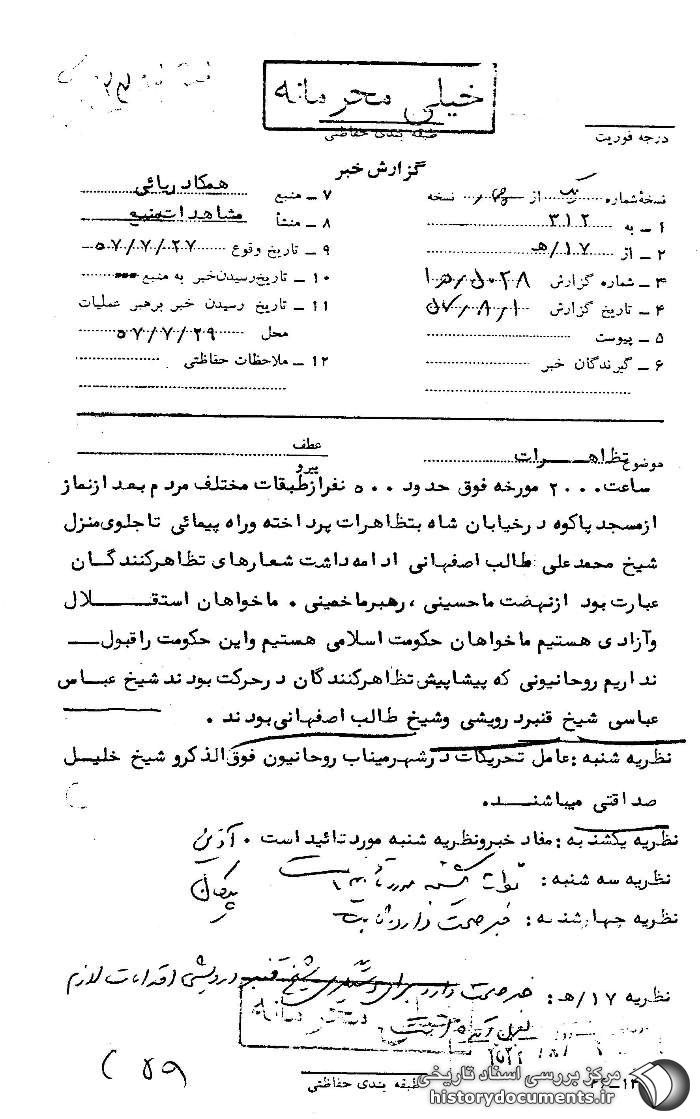 خیلی محرمانه
طبقه بندی حفاظتی
درجه فوریت
گزارش خبر
نسخهٔ شماره یک از نسخه
۱ ـ به ۳۱۲
۲ ـ از ۱۷/هـ
۳ ـ شماره گزارش
۴ ـ تاریخ گزارش ۵۷/۸/۱
۵ ـ پیوست
۶ ـ گیرندگان خبر
۷ ـ منبع همکار ریائی
۸ ـ منشأ مشاهدات منبع
۹ ـ تاریخ وقوع ۵۷/۷/۲۷
۱۰ ـ تاریخ رسیدن خبر به منبع
۱۱ ـ تاریخ رسیدن خبر برهبر عملیات
محل ۵۷/۷/۲۹
۱۲ ـ ملاحظات حفاظتی
موضوع تظاهرات
عطف
پیرو
ساعت ۲۰۰۰ مورخه فوق حدود ۵۰۰ نفر از طبقات مختلف مردم بعد از نماز
از مسجد پاکوه در خیابان شاه بتظاهرات پرداخته و راه پیمائی تا جلوی منزل
شیخ محمد علی طالب اصفهانی ادامه داشت شعارهای تظاهرکنندگان
عبارت بود از نهضت ما حسینی ، رهبر ما خمینی ۰ ما خواهان استقلال
و آزادی هستیم ما خواهان حکومت اسلامی هستیم و این حکومت را قبول
نداریم روحانیونی که پیشاپیش تظاهرکنندگان در حرکت بودند شیخ عباس
عباسی شیخ قنبر درویشی و شیخ طالب اصفهانی بودند ۰
نظریه شنبه : عامل تحریکات در شهر میناب روحانیون فوق الذکر و شیخ خلیل
صداقتی میباشند.
نظریه یکشنبه : مفاد خبر و نظریه شنبه مورد تائید است ۰ آذین
نظریه سه شنبه : پیکان
نظریه چهارشنبه : خبر صحت دارد
نظریه ۱۷/هـ : خبر صحت دارد برای دستگیری شیخ قنبر درویشی اقدامات لازم
خیلی محرمانه
طبقه بندی حفاظتی
مرکز بررسی اسناد تاریخی
historydocuments.ir